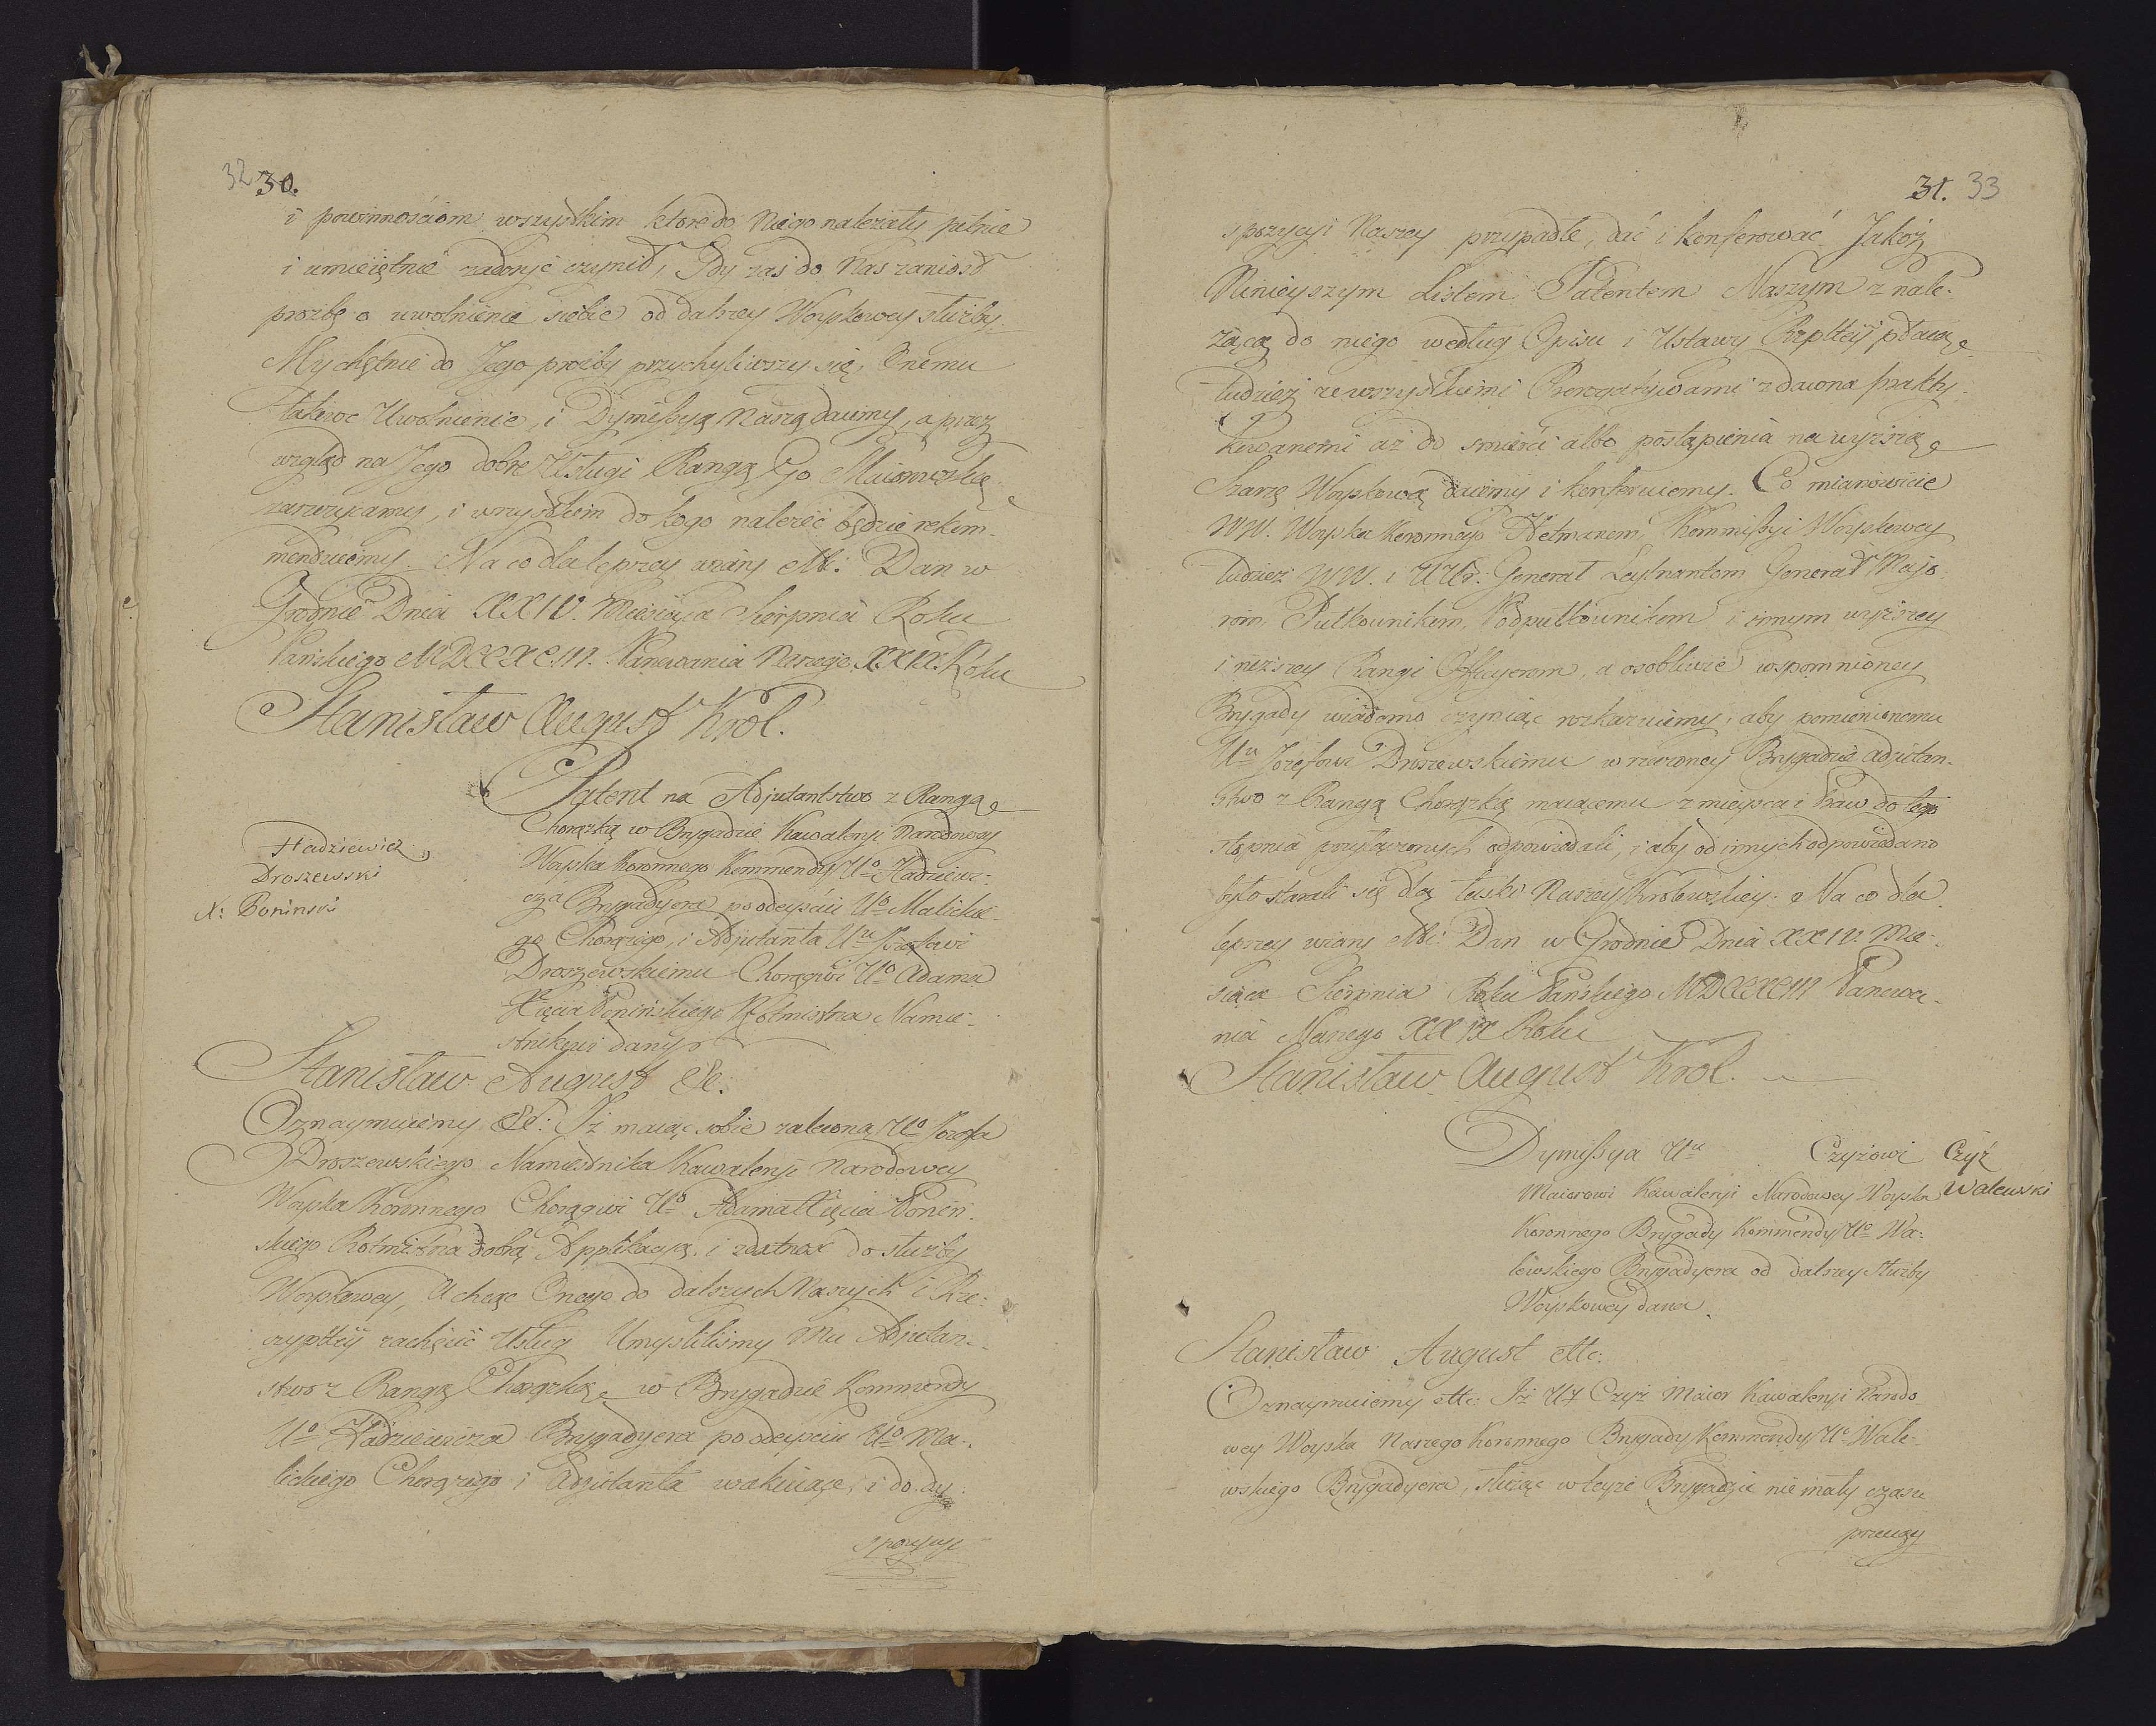 32 30.
i powinnościom wszystkim które do Niego należały pilnie
i umieiętnie zadosyć czynił, Gdy zaś do Nas zaniosł
prozbę o uwolnienie siebie od dalszey Woyskowey służby.
My chętnie do Jego prozby przychyliwszy się, Onemu
takowe Uwolnienie, i Dymissyą Naszą daiemy, a przez
wzgląd na Jego dobre Usługi Rangę Go Maiorowską
zaszczycamy, i wszystkim do kogo należeć będzie rekom-
menduiemy. Na co dla lepszey wiary etc: Dan w
Grodnie Dnia XXIV. Miesiąca Sierpnia Roku
Pańskiego MDCCXCIII. Panowania Naszego XXIX. Roku
Stanisław August Krol.
Patent na Adjutantstwo z Rangą
Chorążką w Brygadzie Kawaleryi Narodowey
Woyska Koronnego Kommendy Uo Hadziewi-
cza Brygadyera po odeyściu Uo Malickie-
go Chorążego, i Adjutanta Uu Jozefowi
Droszewskiemu Chorągwi Uo Adama
Xięcia Ponińskiego Rotmistrza Namie-
stnikowi dany
Hadziewicz
Droszewski
X: Poninski
Stanisław August &c.
Oznaymuiemy &c: Iż maiąc sobie zaleconą Uo Jozefa
Droszewskiego Namiestnika Kawaleryi Narodowey
Woyska Koronnego Chorągwi Uo Adama Xięcia Poniń-
skiego Rotmistrza dobrą Applikacyą, i zdatność do służby
Woyskowey, A chcąc Onego do dalszych Naszych i Rze-
czypltey zachęcić Usług Umysliliśmy Mu Adjutan-
stwo z Rangą Chorążką w Brygadzie Kommendy
Uo Hadziewicza Brygadyera po odeyściu Uo Ma-
lickiego Chorążego i Adjutanta wakuiące, i do dy-
spozycyi
31. 33
spozycyi Naszey przypadłe, dać i konferować Jakoż
Ninieyszym Listem Patentem Naszym z nale-
żącą do niego według Opisu i Ustawy Rzpltey płacą
tudzież ze wszystkimi Prerogatywami zdawna prakty-
kowanemi aż do smierci albo postąpienia na wyższą
Szarżę Woyskową daiemy i konferuiemy. Co mianowicie
WW. Woyska Koronnego Hetmanom, Kommissyi Woyskowey
tudzież WW. i UUr: Generał Leytnantom Generał Majo-
rom, Pułkownikom, Podpułkownikom i innym wyższey
i niższey Rangi Officyerom, a osobliwie wspomnioney
Brygady wiadomo czyniąc rozkazuiemy, aby pomienionemu
Uu Jozefowi Droszewskiemu w rzeczoney Brygadzie Adjutan-
stwo z Rangą Chorążką maiącemu z mieysca i Praw do tego
stopnia przyłączonych odpowiadali, i aby od innych odpowiadano
było starali się dla łaski Naszey Krolewskiey. Na co dla
lepszey wiary etc: Dan w Grodnie Dnia XXIV. Mie-
siąca Sierpnia Roku Pańskiego MDCCXCIII Panowa-
nia Naszego XXIX Roku
Stanisław August Krol.
Dymissya Uu Czyżowi
Maiorowi Kawaleryi Narodowey Woyska
Koronnego Brygady Kommendy Uo Wa-
lewskiego Brygadyera od dalszey służby
Woyskowey dana.
Czyż
Walewski
Stanisław August etc:
Oznaymuiemy etc: Iż Ur Czyż Maior Kawaleryi Narodo-
wey Woyska Naszego Koronnego Brygady Kommendy Uo Wale-
wskiego Brygadyera, służąc w teyże Brygadzie nie mały czasu
przeciąg